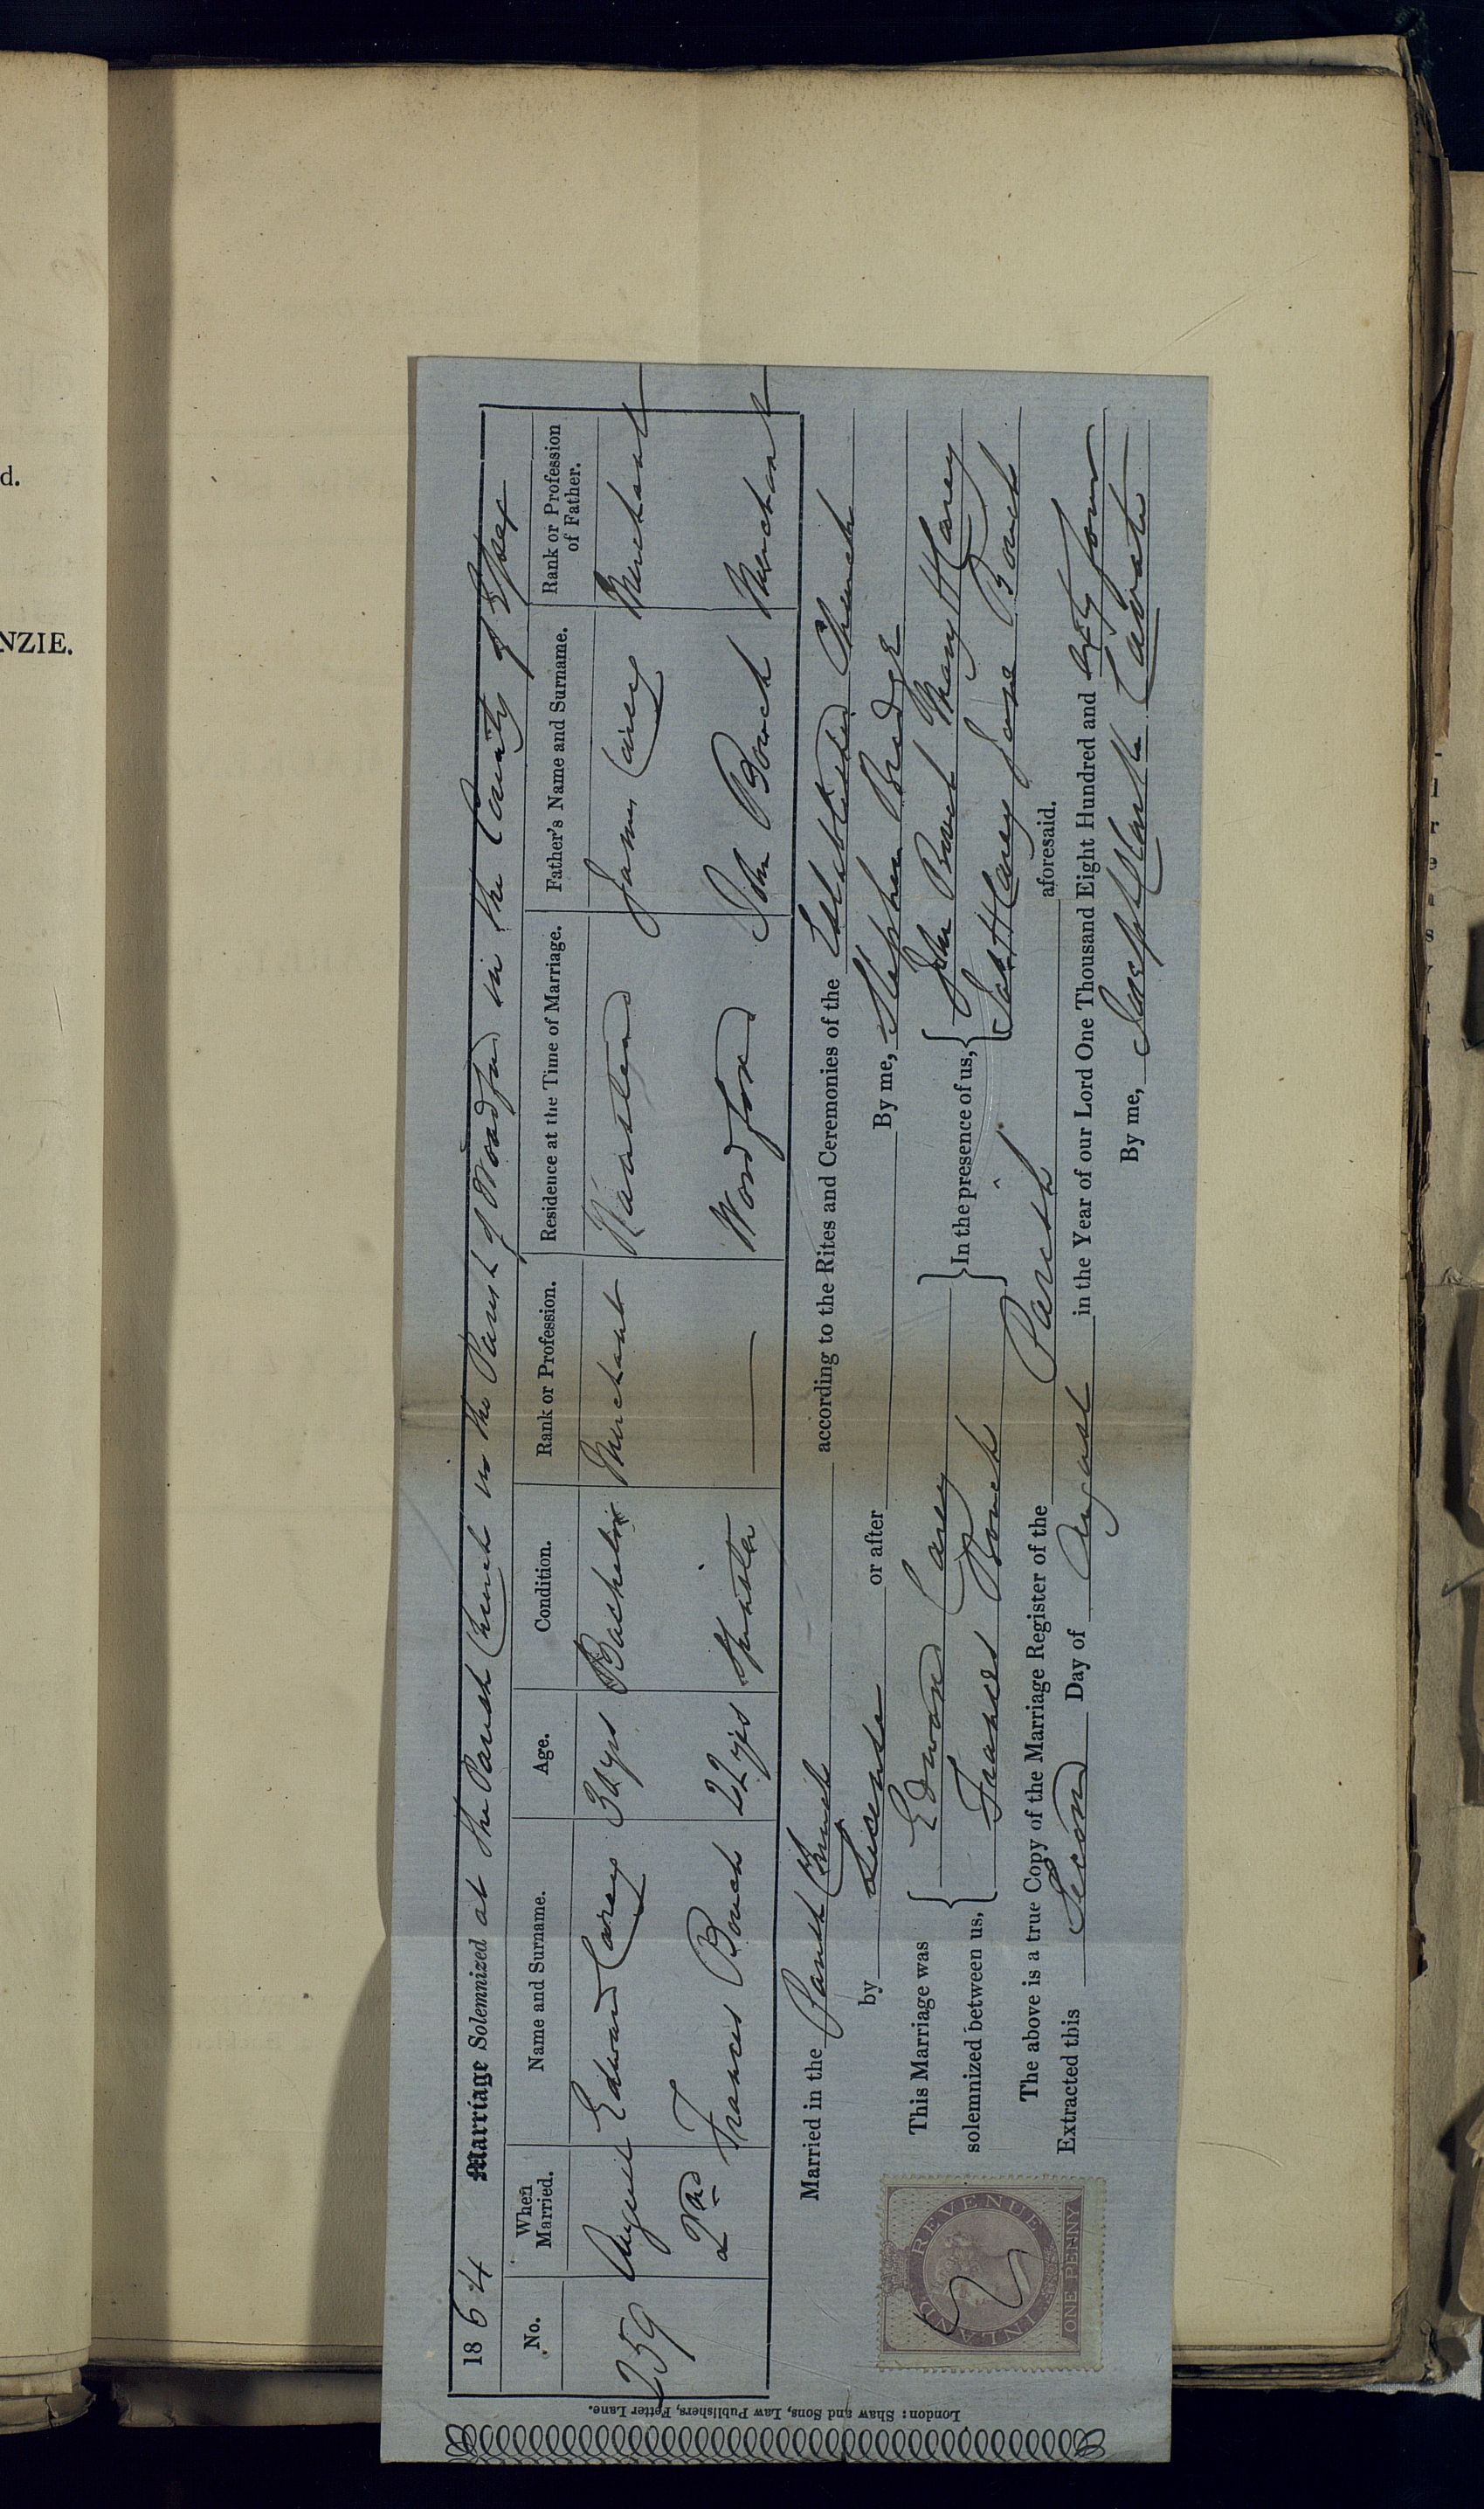 d.
NZIE.
1864 Marriage Solemnized at the Parish Church in the Parish of Woodford in the County of Essex
No. When Married. Name and Surname. Age. Condition. Rank or Profession. Residence at the Time of Marriage. Father's Name and Surname. Rank or Profession of Father.
259 August Edward Carey 30 yrs Bachelor Merchant Wanstead James Carey Merchant
2nd Frances Bouch 22 yrs Spinster — Woodford John Bouch Merchant
Married in the Parish Church according to the Rites and Ceremonies of the Established Church
by License or after By me, Stephen Bridge
This Marriage was solemnized between us, Edward Carey In the presence of us, John Bouch Mary H Carey
Frances Bouch Carey Jane Bouch
The above is a true Copy of the Marriage Register of the Parish aforesaid.
Extracted this Second Day of August in the Year of our Lord One Thousand Eight Hundred and sixty four
By me, Curate
INLAND REVENUE
ONE PENNY
London: Shaw and Sons, Law Publishers, Fetter Lane.